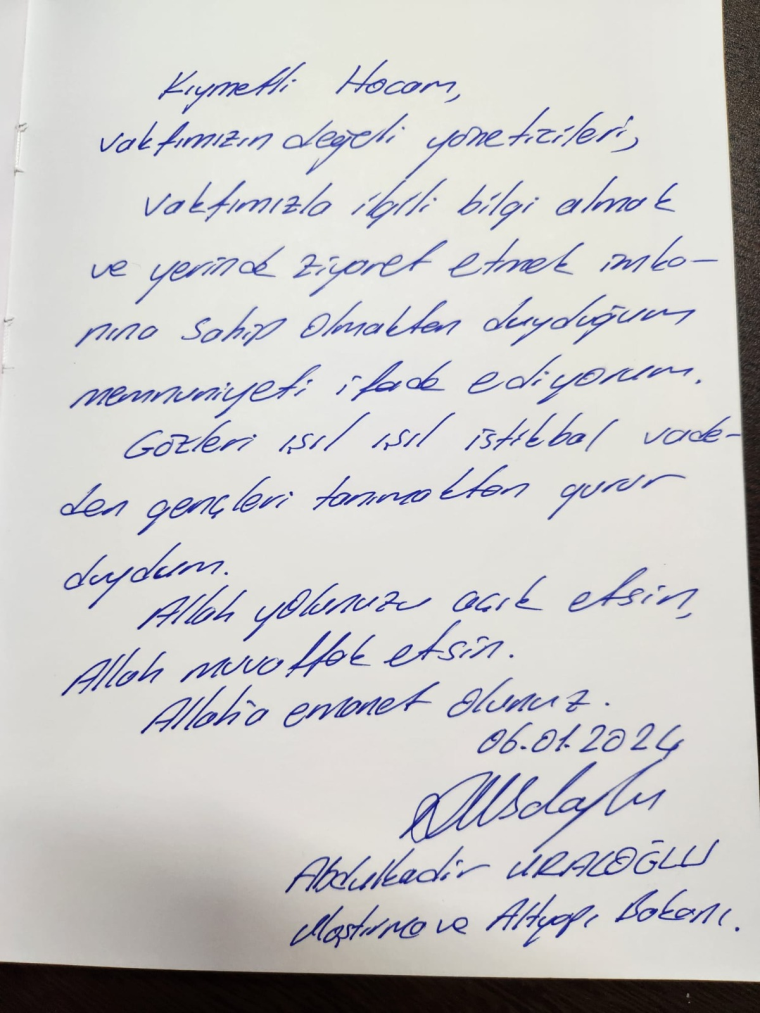 Kıymetli Hocam,
vakfımızın değeli yöneticileri,
Vakfımızla ilgili bilgi almak
ve yerinde ziyaret etmek imka-
nına sahip olmaktan duyduğum
memnuniyeti ifade ediyorum.
Gözleri ışıl ışıl istikbal vade-
den gençleri tanımaktan gurur
duydum.
Allah yolunuzu açık etsin,
Allah muvaffak etsin.
Allah'a emanet olunuz.
06.01.2024
Abdulkadir URALOĞLU
Ulaştırma ve Altyapı Bakanı.